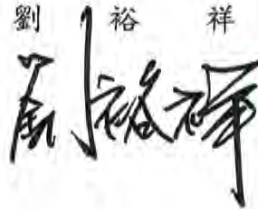 劉裕祥
劉裕祥